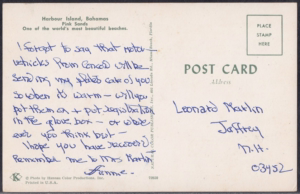 Harbour Island, Bahamas
Pink Sands
One of the world's most beautiful beaches.
PLACE
STAMP
HERE
POST CARD
Address
I forgot to say that motor
vehicles from Concord will be
sending my plates care of you
So when its warm - will you
put them on + put registration
in the glove box - or what
ever you think best -
I hope you have success!
Remember me to Mrs
Leonard
Jaffrey
N.H.
03452
K
Printed in U.S.A.